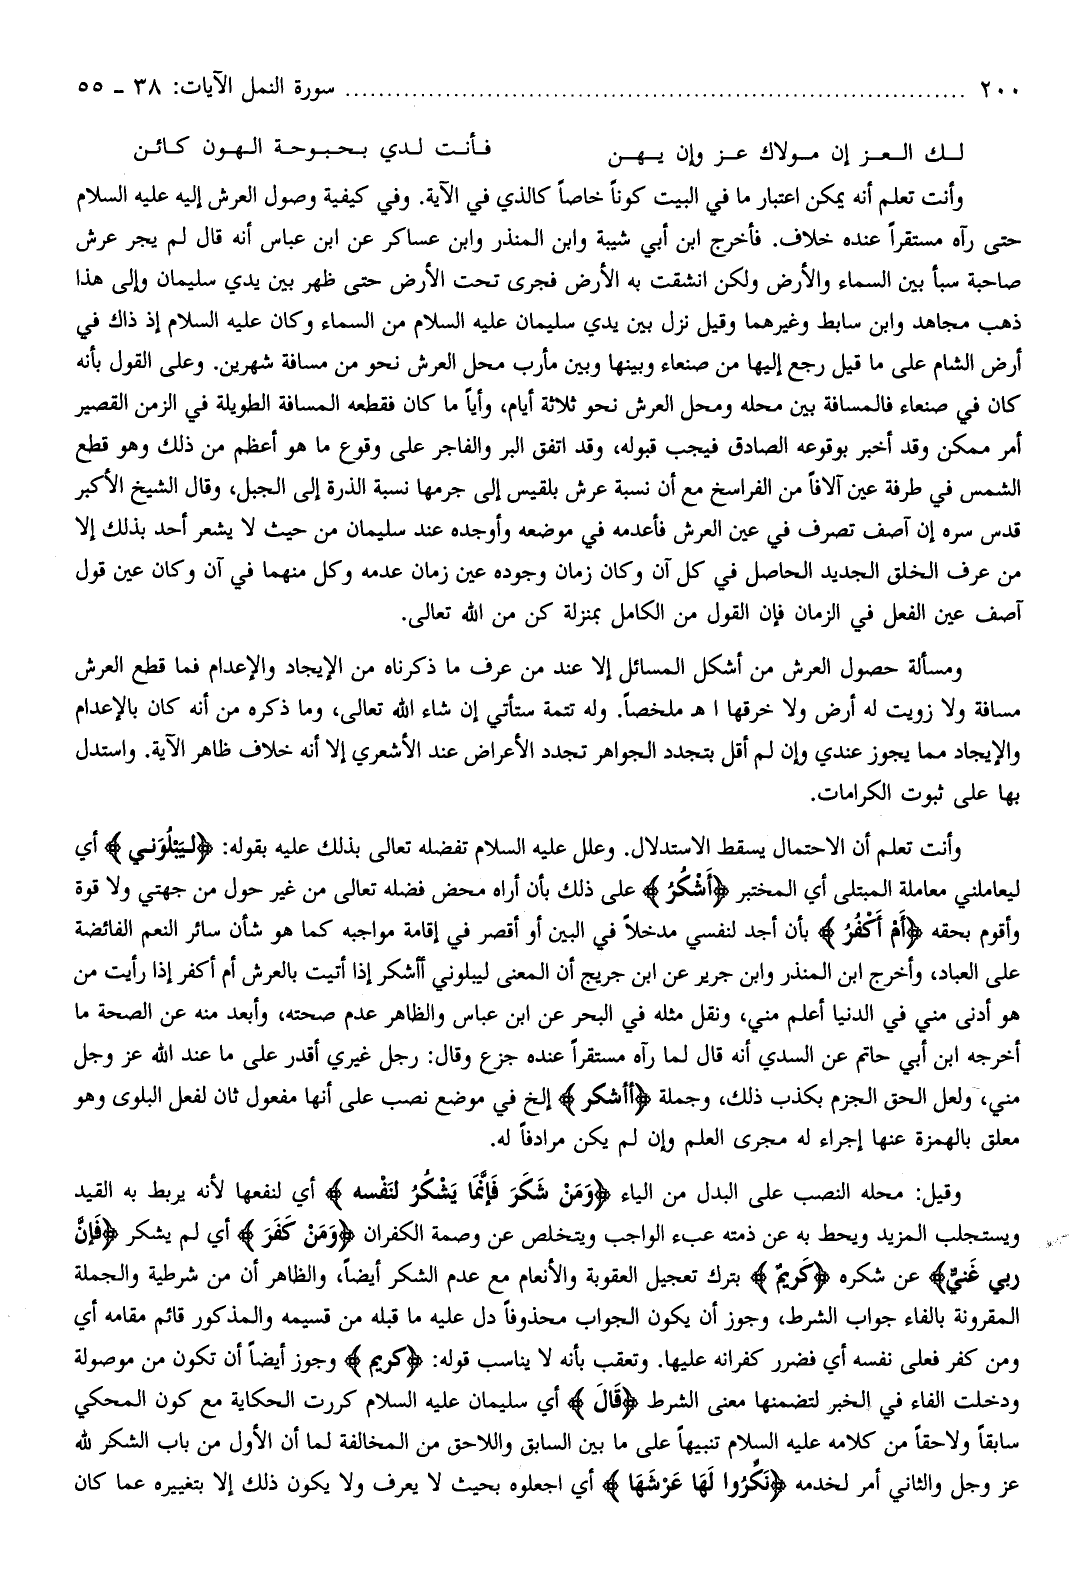 ٢٠٠ ........................................................................... سورة النمل الآيات: ٣٨ ـ ٥٥
لـك الـعـز إن مـولاك عـز وإن يـهـن فـأنـت لـدي بـحـبـوحـة الـهـون كـائـن
وأنت تعلم أنه يمكن اعتبار ما في البيت كوناً خاصاً كالذي في الآية. وفي كيفية وصول العرش إليه عليه السلام
حتى رآه مستقراً عنده خلاف. فأخرج ابن أبي شيبة وابن المنذر وابن عساكر عن ابن عباس أنه قال لم يجر عرش
صاحبة سبأ بين السماء والأرض ولكن انشقت به الأرض فجرى تحت الأرض حتى ظهر بين يدي سليمان وإلى هذا
ذهب مجاهد وابن سابط وغيرهما وقيل نزل بين يدي سليمان عليه السلام من السماء وكان عليه السلام إذ ذاك في
أرض الشام على ما قيل رجع إليها من صنعاء وبينها وبين مأرب محل العرش نحو من مسافة شهرين. وعلى القول بأنه
كان في صنعاء فالمسافة بين محله ومحل العرش نحو ثلاثة أيام، وأياً ما كان فقطعه المسافة الطويلة في الزمن القصير
أمر ممكن وقد أخبر بوقوعه الصادق فيجب قبوله، وقد اتفق البر والفاجر على وقوع ما هو أعظم من ذلك وهو قطع
الشمس في طرفة عين آلافاً من الفراسخ مع أن نسبة عرش بلقيس إلى جرمها نسبة الذرة إلى الجبل، وقال الشيخ الأكبر
قدس سره إن آصف تصرف في عين العرش فأعدمه في موضعه وأوجده عند سليمان من حيث لا يشعر أحد بذلك إلا
من عرف الخلق الجديد الحاصل في كل آن وكان زمان وجوده عين زمان عدمه وكل منهما في آن وكان عين قول
آصف عين الفعل في الزمان فإن القول من الكامل بمنزلة كن من الله تعالى.
ومسألة حصول العرش من أشكل المسائل إلا عند من عرف ما ذكرناه من الإيجاد والإعدام فما قطع العرش
مسافة ولا زويت له أرض ولا خرقها ا هـ ملخصاً. وله تتمة ستأتي إن شاء الله تعالى، وما ذكره من أنه كان بالإعدام
والإيجاد مما يجوز عندي وإن لم أقل بتجدد الجواهر تجدد الأعراض عند الأشعري إلا أنه خلاف ظاهر الآية. واستدل
بها على ثبوت الكرامات.
وأنت تعلم أن الاحتمال يسقط الاستدلال. وعلل عليه السلام تفضله تعالى بذلك عليه بقوله: ﴿لِيَبْلُوَنـي﴾ أي
ليعاملني معاملة المبتلى أي المختبر ﴿أَشْكُرُ﴾ على ذلك بأن أراه محض فضله تعالى من غير حول من جهتي ولا قوة
وأقوم بحقه ﴿أَمْ أَكْفُرُ﴾ بأن أجد لنفسي مدخلاً في البين أو أقصر في إقامة مواجبه كما هو شأن سائر النعم الفائضة
على العباد، وأخرج ابن المنذر وابن جرير عن ابن جريج أن المعنى ليبلوني أأشكر إذا أتيت بالعرش أم أكفر إذا رأيت من
هو أدنى مني في الدنيا أعلم مني، ونقل مثله في البحر عن ابن عباس والظاهر عدم صحته، وأبعد منه عن الصحة ما
أخرجه ابن أبي حاتم عن السدي أنه قال لما رآه مستقراً عنده جزع وقال: رجل غيري أقدر على ما عند الله عز وجل
مني، ولعل الحق الجزم بكذب ذلك، وجملة ﴿أأشكر﴾ إلخ في موضع نصب على أنها مفعول ثان لفعل البلوى وهو
معلق بالهمزة عنها إجراء له مجرى العلم وإن لم يكن مرادفاً له.
وقيل: محله النصب على البدل من الياء ﴿وَمَنْ شَكَرَ فَإِنَّمَا يَشْكُرُ لنَفْسه﴾ أي لنفعها لأنه يربط به القيد
ويستجلب المزيد ويحط به عن ذمته عبء الواجب ويتخلص عن وصمة الكفران ﴿وَمَنْ كَفَرَ﴾ أي لم يشكر ﴿فَإِنَّ
ربي غَنيٌّ﴾ عن شكره ﴿كَريمٌ﴾ بترك تعجيل العقوبة والأنعام مع عدم الشكر أيضاً، والظاهر أن من شرطية والجملة
المقرونة بالفاء جواب الشرط، وجوز أن يكون الجواب محذوفاً دل عليه ما قبله من قسيمه والمذكور قائم مقامه أي
ومن كفر فعلى نفسه أي فضرر كفرانه عليها. وتعقب بأنه لا يناسب قوله: ﴿كريم﴾ وجوز أيضاً أن تكون من موصولة
ودخلت الفاء في الخبر لتضمنها معنى الشرط ﴿قَالَ﴾ أي سليمان عليه السلام كررت الحكاية مع كون المحكي
سابقاً ولاحقاً من كلامه عليه السلام تنبيهاً على ما بين السابق واللاحق من المخالفة لما أن الأول من باب الشكر لله
عز وجل والثاني أمر لخدمه ﴿نَكِّرُوا لَهَا عَرْشَهَا﴾ أي اجعلوه بحيث لا يعرف ولا يكون ذلك إلا بتغييره عما كان